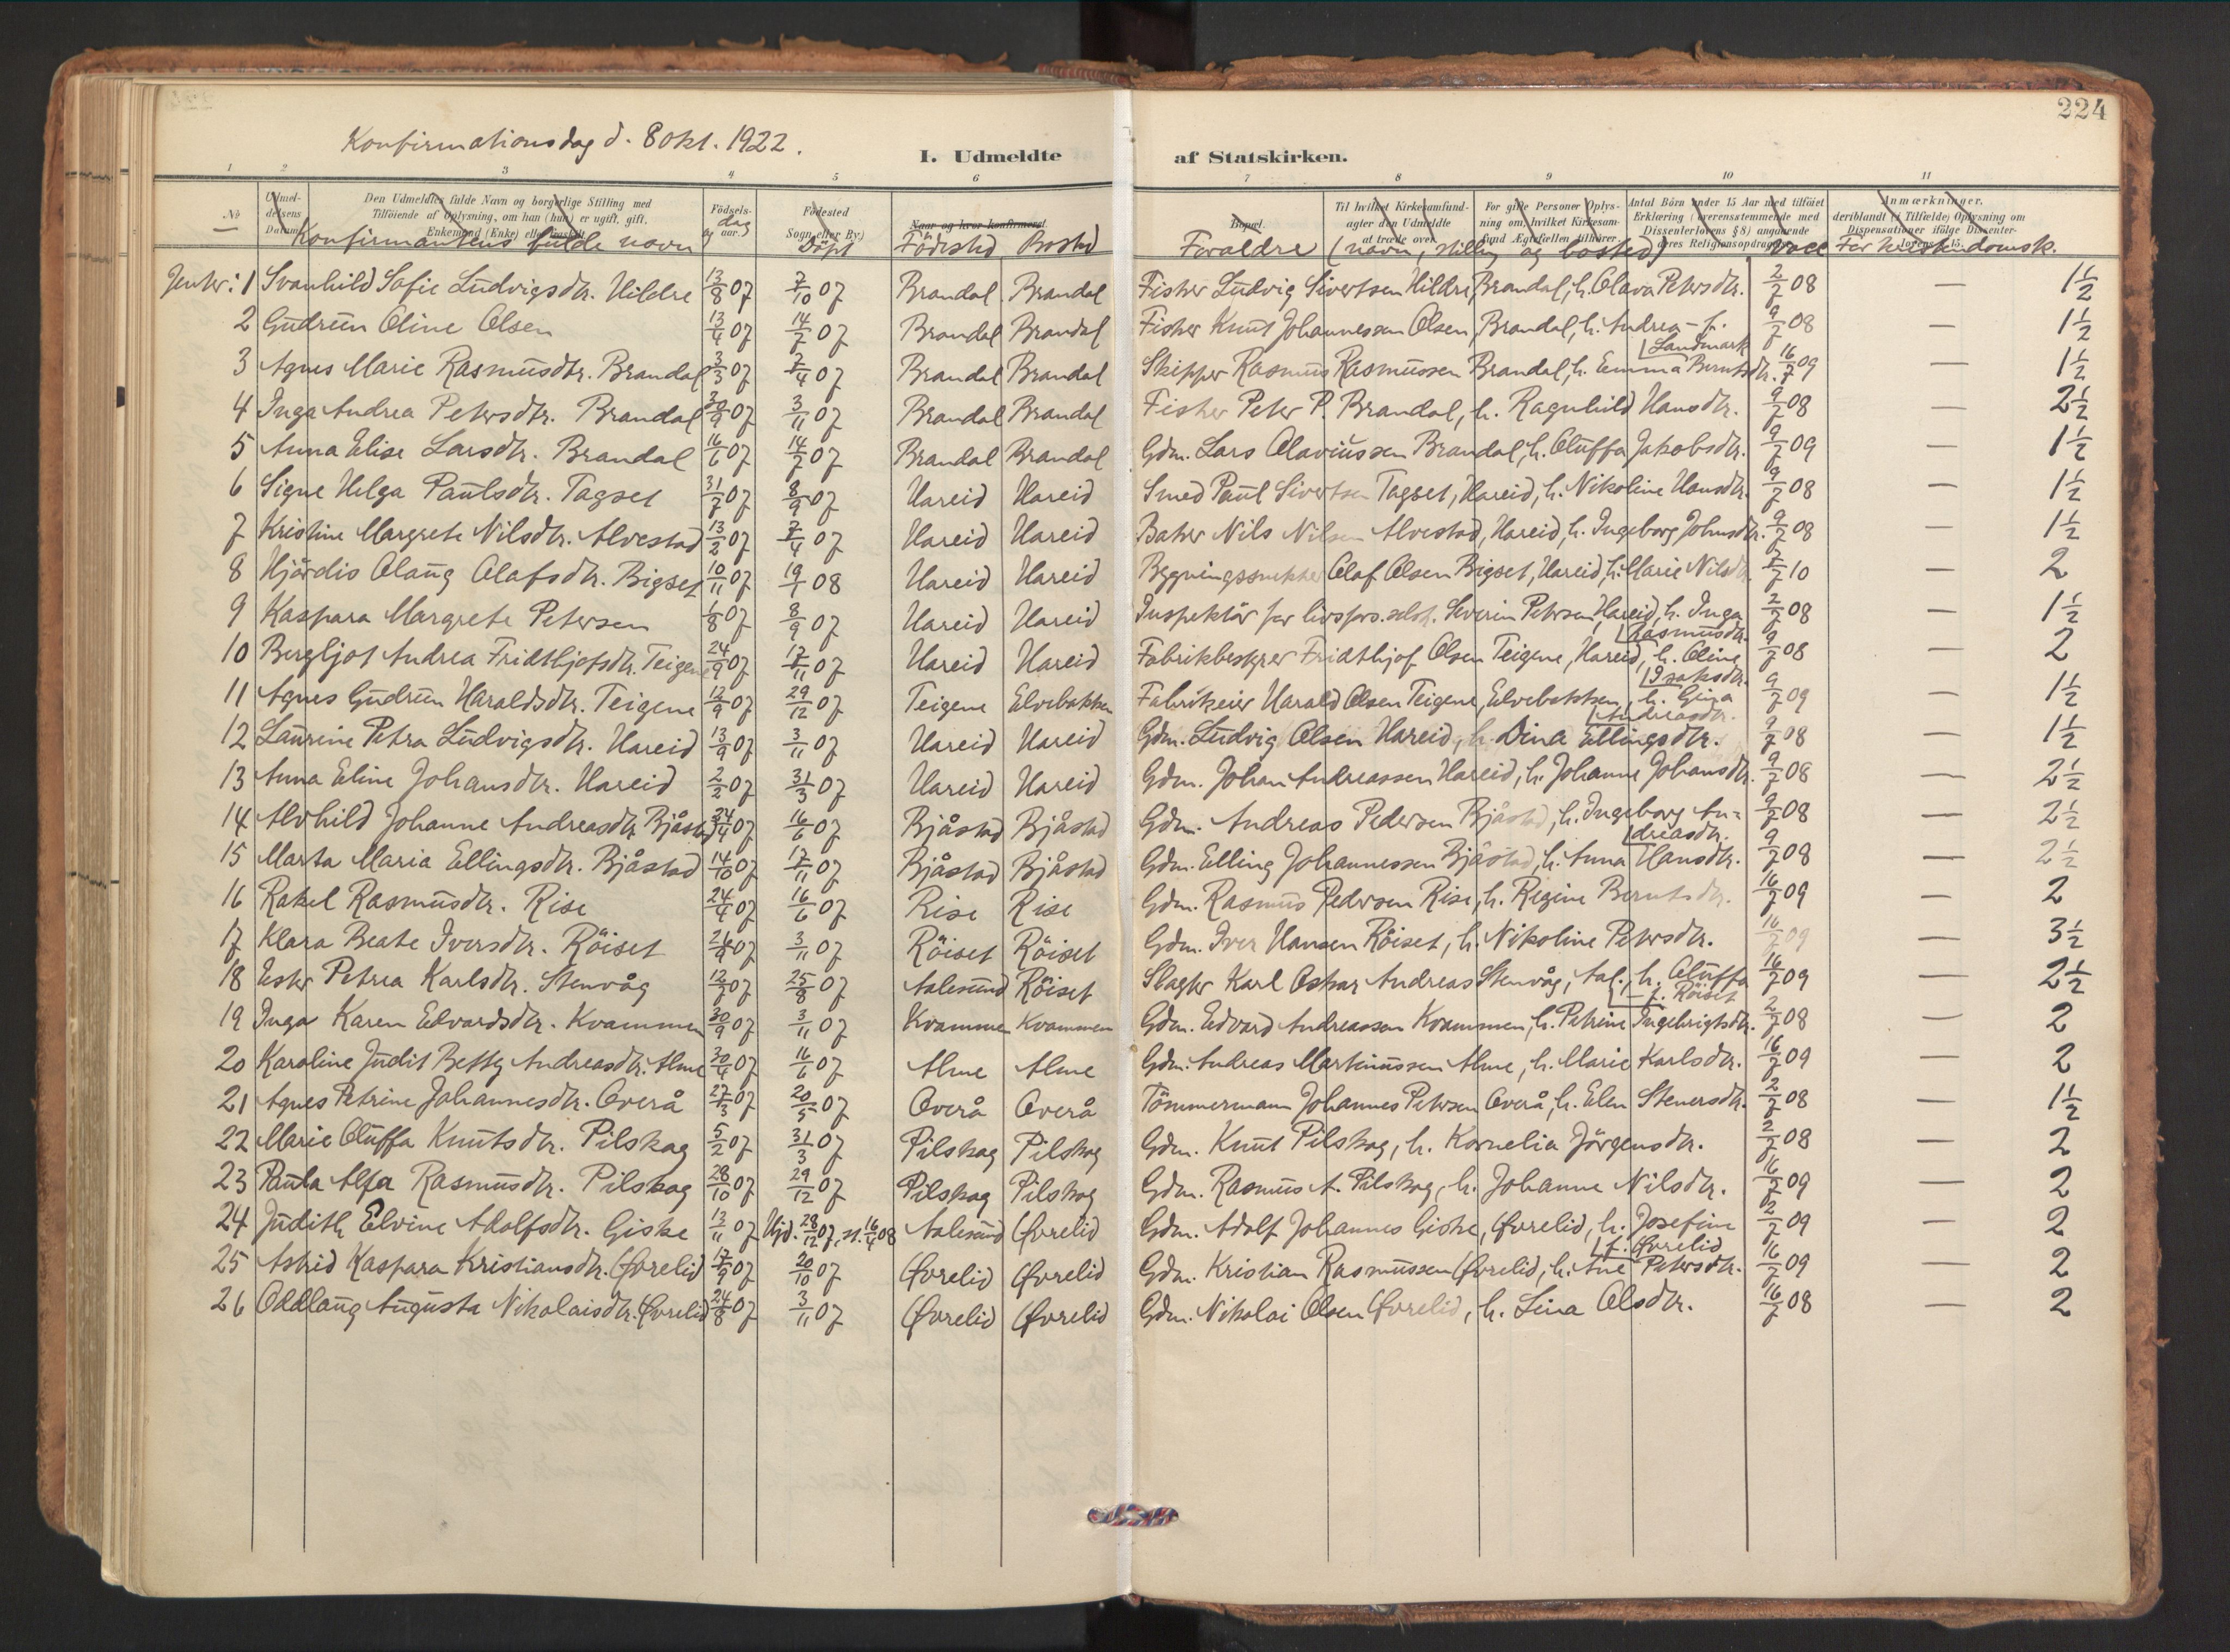 224
Konfirmationsdag d. 8 okt. 1922.
I. Udmeldte af Statskirken.
1 2 3 4 5 6 7 8 9 10 11
№ Udmeldelsens Datum. Den Udmeldtes fulde Navn og borgerlige Stilling med Tilføiende af Oplysning, om han (hun) er ugift, gift, Enkemand (Enke) eller fraskilt. Fødsels- og aar. Fødested Sogn eller By.) Naar og hvor konfirmeret. Bopæl. Til hvilket Kirkesamfund agter den Udmeldte at træde over. For gifte Personer Oplysning om, hvilket Kirkesamfund Ægtefællen tilhører. Antal Börn under 15 Aar med tilföiet Erklæring (overensstemmende med Dissenterlovens § 8) angaaende deres Religionsopdragelse. Anmærkninger, deriblandt (i Tilfælde) Oplysning om Dispensationer ifölge Dissenterlovens § 15.
Konfirmantens fulde navn dag Döpt Födested Bosted Foraldre (navn, stilling og bosted) Vacc Før kristendomsk.
Jenter: 1 Svanhild Sofie Ludvigsdtr. Hildre 13/8 07 7/10 07 Brandal Brandal Fisker Ludvig Sivertsen Hildre, Brandal, h. Olava Petersdtr. 2/7 08 — 1½
2 Gudrun Oline Olsen 13/4 07 14/7 07 Brandal Brandal Fisker Knut Johannessen Olsen, Brandal, h. Andrea - f. Landmark 9/7 08 — 1½
3 Agnes Marie Rasmusdtr. Brandal 3/3 07 7/4 07 Brandal Brandal Skipper Rasmus Rasmussen Brandal, h. Emma Berntsdtr. 16/7 09 — 1½
4 Inga Andrea Petersdtr. Brandal 30/9 07 3/11 07 Brandal Brandal Fisker Peter P. Brandal, h. Ragnhild Hansdtr. 9/7 08 — 2½
5 Anna Elise Larsdtr. Brandal 16/6 07 14/7 07 Brandal Brandal Gdm. Lars Olaviussen Brandal, h. Oluffa Jakobsdtr. 9/7 09 — 1½
6 Signe Helga Paulsdtr. Tagset 31/7 07 8/9 07 Hareid Hareid Smed Paul Sivertsen Tagset, Hareid, h. Nikoline Hansdtr. 9/7 08 — 1½
7 Kristine Margrete Nilsdtr. Alvestad 13/2 07 7/4 07 Hareid Hareid Baker Nils Nilsen Alvestad, Hareid, h. Ingeborg Johnsdtr. 9/7 08 — 1½
8 Hjördis Olaug Olafsdtr. Bigset 10/11 07 19/1 08 Hareid Hareid Bygningssnekker Olaf Olsen Bigset, Hareid, h. Marie Nilsdtr. 2/7 10 — 2
9 Kaspara Margrete Petersen 1/8 07 8/9 07 Hareid Hareid Inspektör for livsfors.selsk. Severin Petersen, Hareid, h. Inga Rasmusdtr. 2/7 08 — 1½
10 Bergljot Andrea Fridthjofsdtr. Teigene 24/9 07 17/11 07 Hareid Hareid Fabrikbestyrer Fridthjof Olsen Teigene, Hareid, h. Oline Isaksdtr. 9/7 08 — 2
11 Agnes Gudrun Haraldsdtr. Teigene 12/9 07 29/12 07 Teigene Elvebakken Fabrikeier Harald Olsen Teigene, Elvebakken, h. Gina Andreasdtr. 9/7 09 — 1½
12 Laurine Petra Ludvigsdtr. Hareid 13/9 07 3/11 07 Hareid Hareid Gdm. Ludvig Olsen Hareid, h. Dina Ellingsdtr. 9/7 08 — 1½
13 Anna Eline Johansdtr. Hareid 2/2 07 31/3 07 Hareid Hareid Gdm. Johan Andreassen Hareid, h. Johanne Johansdtr. 9/7 08 — 2½
14 Alvhild Johanne Andreasdtr. Bjåstad 24/4 07 16/6 07 Bjåstad Bjåstad Gdm. Andreas Pedersen Bjåstad, h. Ingeborg Andreasdtr. 9/7 08 — 2½
15 Marta Maria Ellingsdtr. Bjåstad 14/10 07 17/11 07 Bjåstad Bjåstad Gdm. Elling Johannessen Bjåstad, h. Anna Hansdtr. 9/7 08 — 2½
16 Rakel Rasmusdtr. Rise 24/4 07 16/6 07 Rise Rise Gdm. Rasmus Pedersen Rise, h. Regine Berntsdtr. 16/7 09 — 2
17 Klara Beate Iversdtr. Röiset 07 3/11 07 Röiset Röiset Gdm. Iver Hansen Röiset, h. Nikoline Petersdtr. 16/7 09 — 3½
18 Ester Petrea Karlsdtr. Stenvåg 12/7 07 25/8 07 Aalesund Röiset Slagter Karl Oskar Andreas Stenvåg, Aal., h. Oluffa - f. Röiset 16/7 09 — 2½
19 Inga Karen Edvardsdtr. Kvammen 30/9 07 3/11 07 Kvammen Kvammen Gdm. Edvard Andreassen Kvammen, h. Petrine Ingebrigtsdtr. 2/7 08 — 2
20 Karoline Judit Betty Andreasdtr. Alme 30/4 07 16/6 07 Alme Alme Gdm. Andreas Martinussen Alme, h. Marie Karlsdtr. 16/7 09 — 2
21 Agnes Petrine Johannesdtr. Overå 27/3 07 20/5 07 Overå Overå Tömmermann Johannes Petersen Overå, h. Elen Stenersdtr. 2/7 08 — 1½
22 Marie Oluffa Knutsdtr. Pilskog 5/2 07 31/3 07 Pilskog Pilskog Gdm. Knut Pilskog, h. Kornelia Jörgensdtr. 2/7 08 — 2
23 Paula Alfa Rasmusdtr. Pilskog 28/10 07 29/12 07 Pilskog Pilskog Gdm. Rasmus A. Pilskog, h. Johanne Nilsdtr. 16/7 09 — 2
24 Judith Elvine Adolfsdtr. Giske 13/11 07 Hjd. 28/12 07, st. 16/4 08 Aalesund Øvrelid Gdm. Adolf Johannes Giske, Øvrelid, h. Josefine f. Øvrelid 2/7 09 — 2
25 Astrid Kaspara Kristiansdtr. Øvrelid 17/9 07 20/10 07 Øvrelid Øvrelid Gdm. Kristian Rasmussen Øvrelid, h. Ane Petersdtr. 16/7 09 — 2
26 Oddlaug Augusta Nikolaisdtr. Øvrelid 24/8 07 3/11 07 Øvrelid Øvrelid Gdm. Nikolai Olsen Øvrelid, h. Lina Olsdtr. 16/7 08 — 2